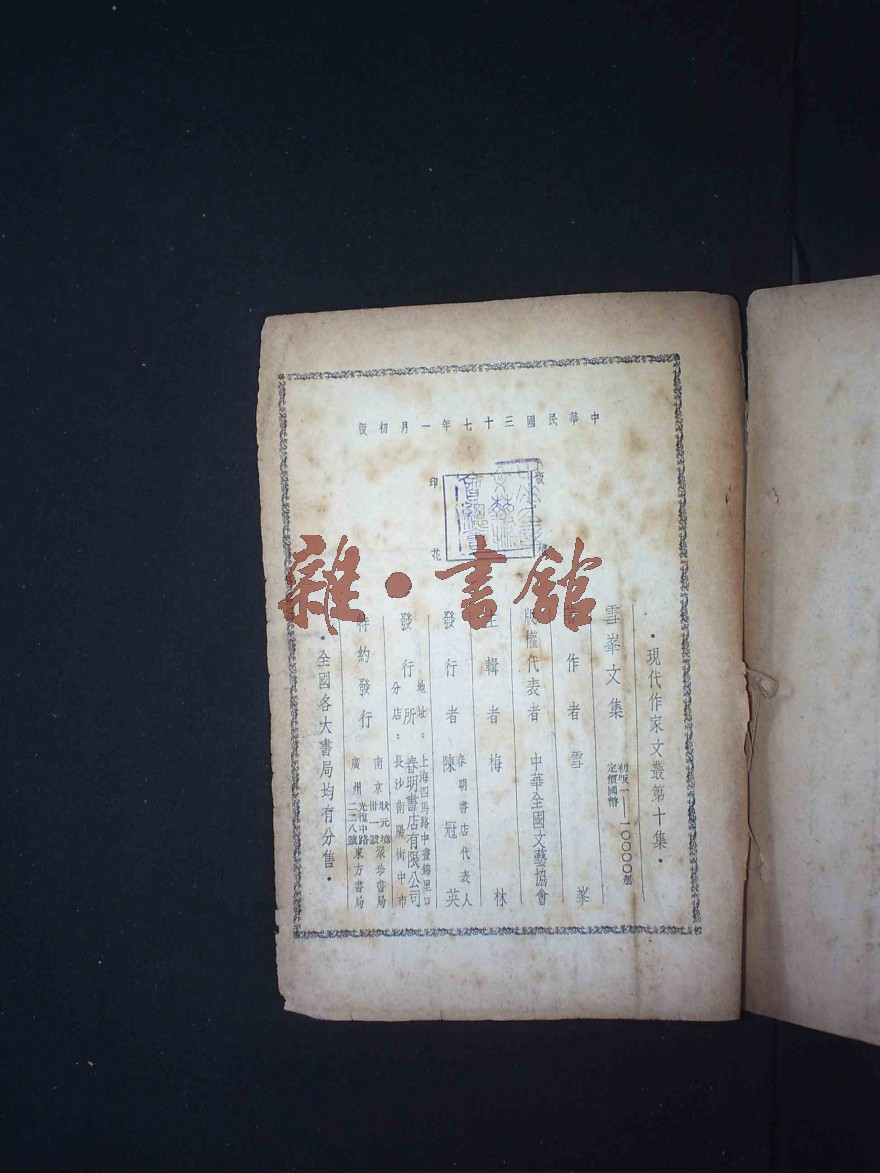 中華民國三十七年一月初版
印花
雜·書館
·現代作家文叢第十集·
雪峯文集
初版一——一〇〇〇〇冊
定價國幣
著作者 雪峯
版權代表者 中華全國文藝協會
主輯者 梅林
發行者 春明書店代表人 陳冠英
發行所 春明書店有限公司
地址：上海四馬路中晝錦里口
分店：長沙南陽街中市
特約發行
南京狀元境卅一號聚珍書局
廣州光復中路二二八號東方書局
·全國各大書局均有分售·